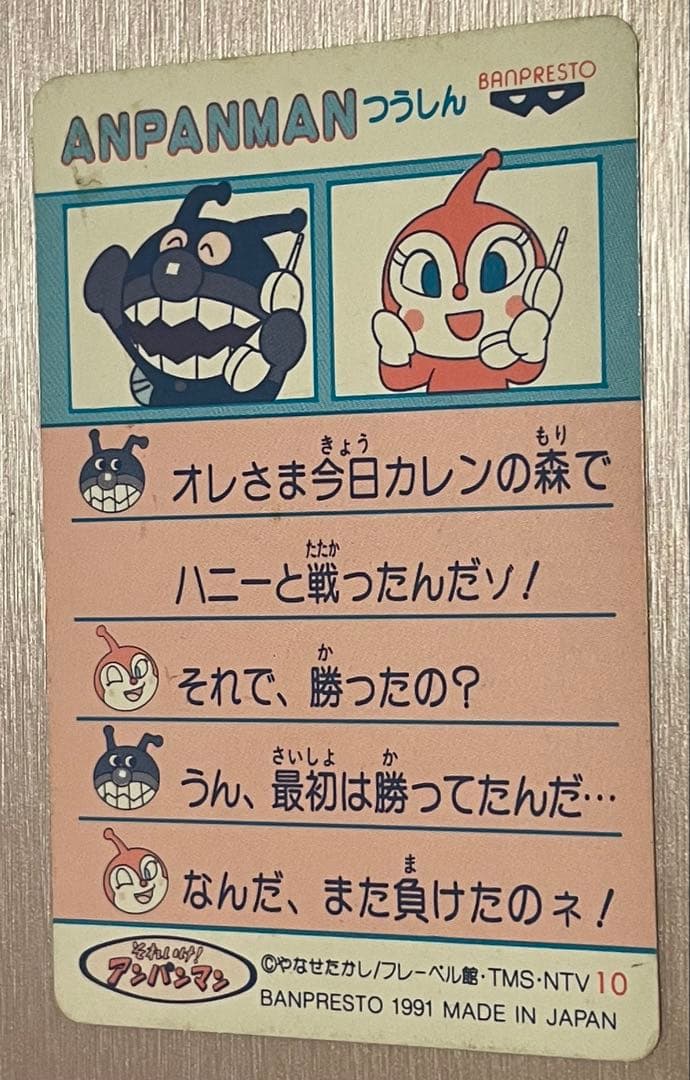 ANPANMAN つうしん
BANPRESTO
きょう もり
オレさま今日カレンの森で
たたか
ハニーと戦ったんだゾ!
か
それで、勝ったの?
さいしょ か
うん、最初は勝ってたんだ…
ま
なんだ、また負けたのネ!
それいけ!
アンパンマン
©やなせたかし/フレーベル館・TMS・NTV 10
BANPRESTO 1991 MADE IN JAPAN